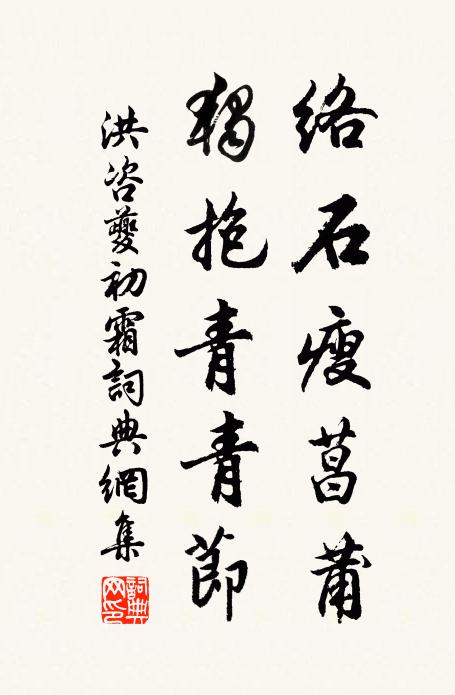 絡石瘦菖蒲
獨抱青青節
洪咨夔初霜詞典網集
詞典網印